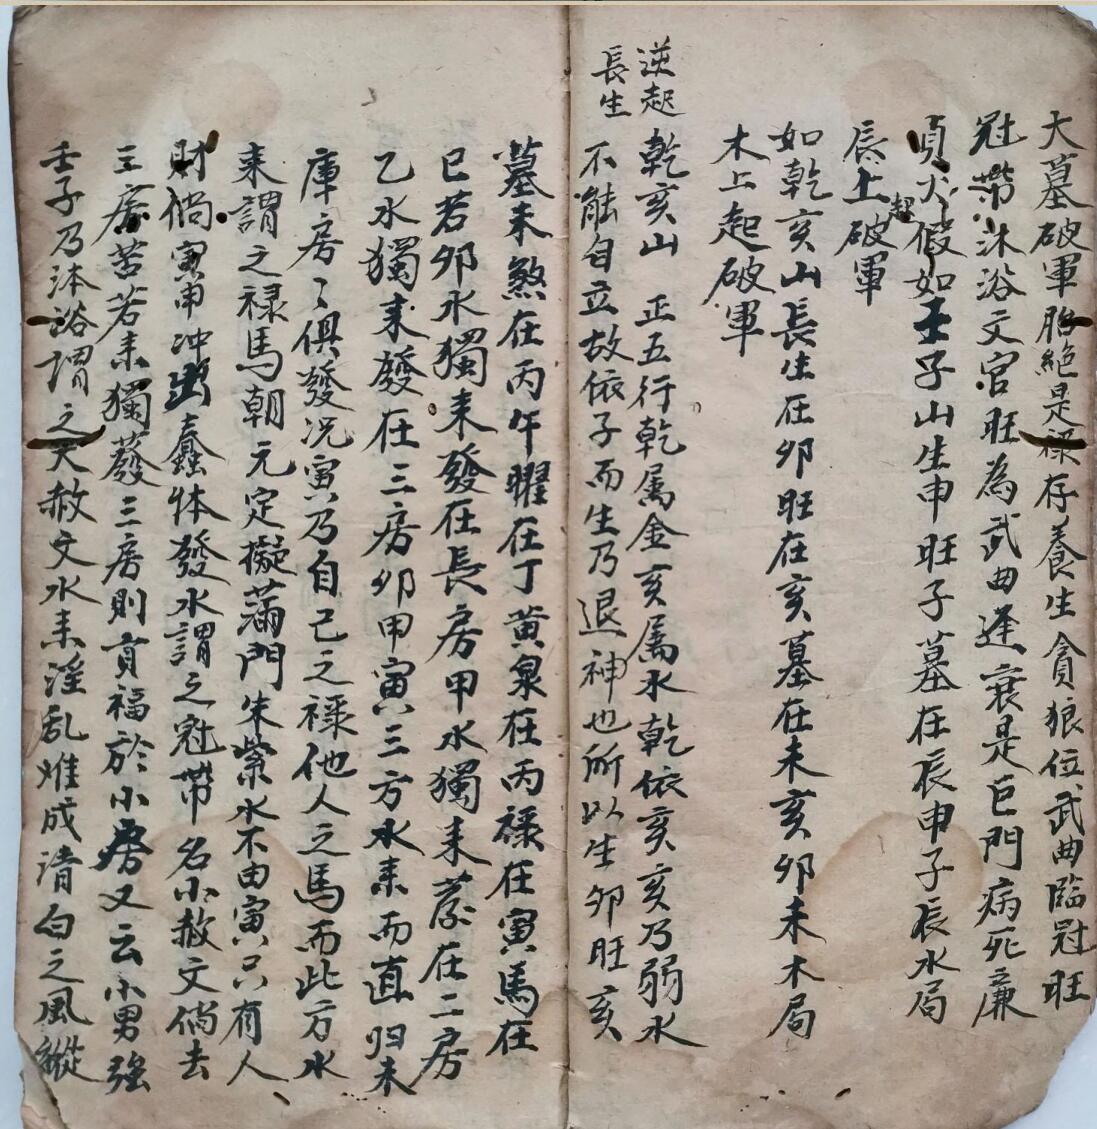 大墓破軍胎絕是祿存養生貪狼位武曲臨冠旺
冠帶沐浴文官旺為武曲逢衰是巨門病死廉
貞火假如壬子山生申旺子墓在辰申子辰水局
辰土起破軍
如乾亥山長生在卯旺在亥墓在未亥卯未木局
木上起破軍
逆起
長生
乾亥山 正五行乾属金亥属水乾依亥亥乃弱水
不能自立故依子而生乃退神也所以生卯旺亥
墓未煞在丙午曜在丁黄泉在丙祿在寅馬在
巳若卯水獨来發在長房甲水獨来發在二房
乙水獨来發在三房卯甲寅三方水来而直归未
庫房々俱發况寅乃自己之祿他人之馬而此方水
来謂之祿馬朝元定擬满門朱紫水不由寅只有人
財倘寅申冲出蠢体發水謂之冠帶名小赦文倘去
三房苦若未獨發三房則貢福於小房又云小男强
壬子乃沐浴謂之大赦文水来淫乱难成清白之風縱